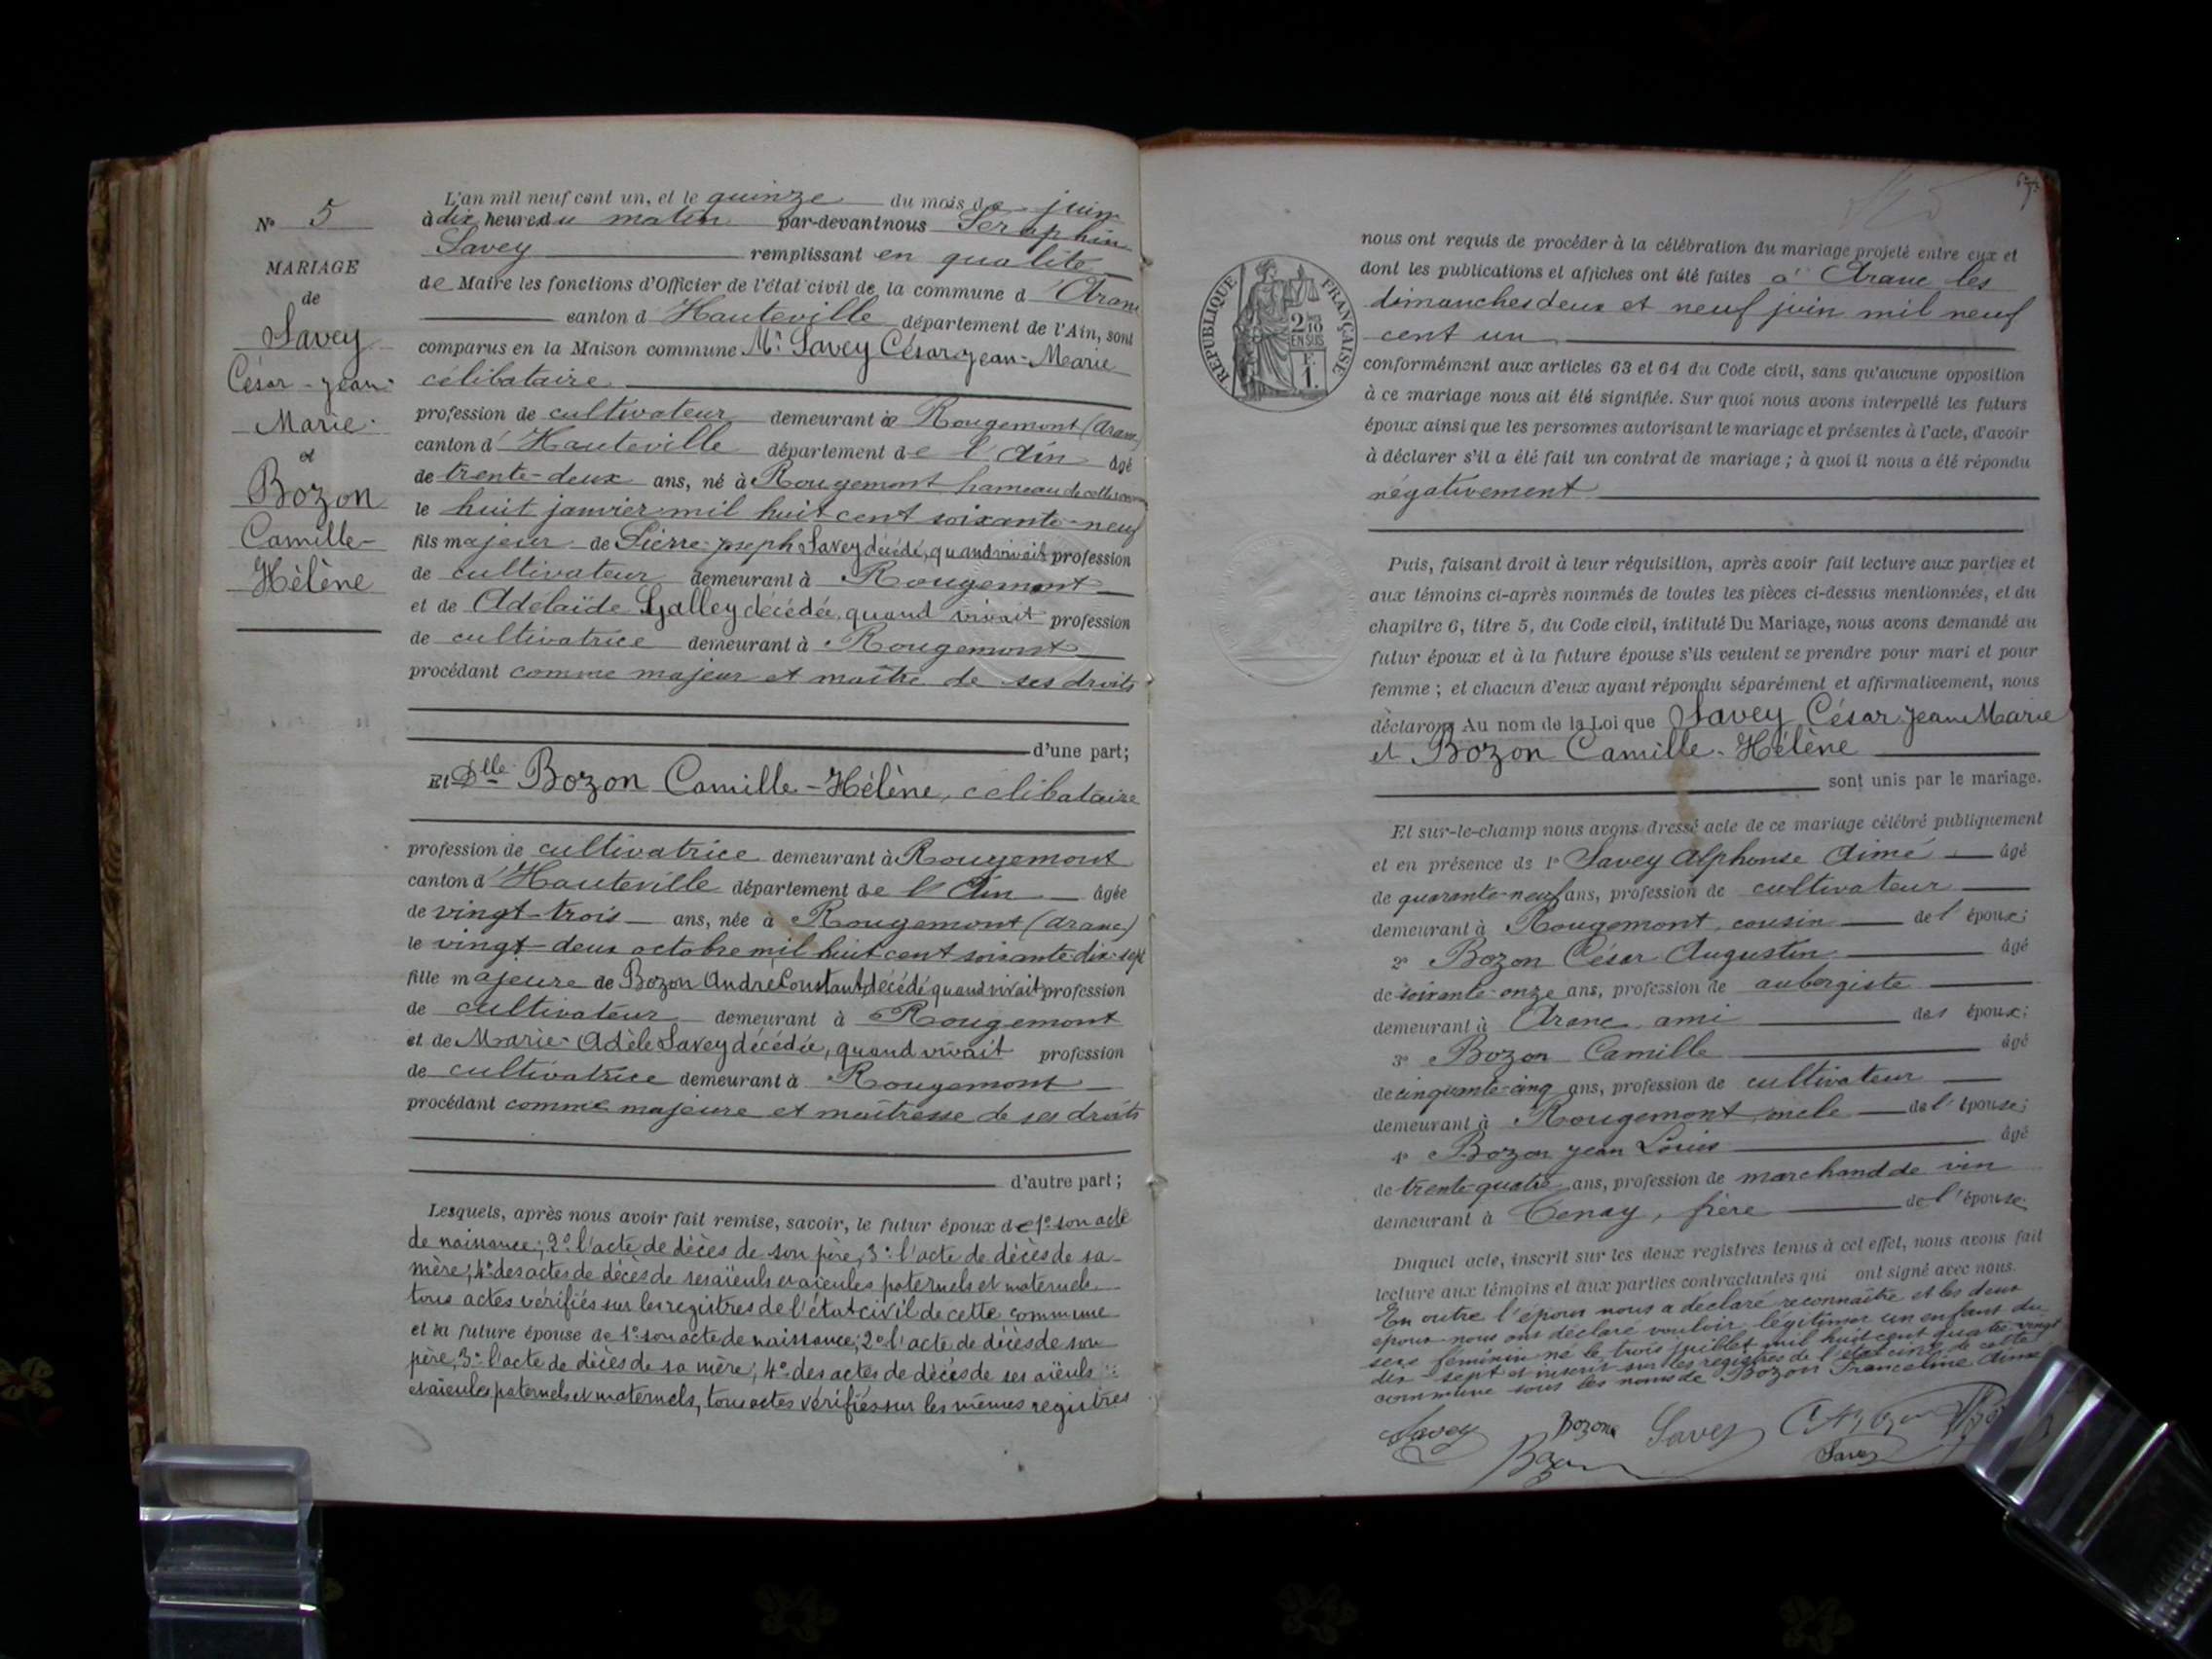 N° 5
MARIAGE
de
Savey
César-jean-
Marie
et
Bozon
Camille-
Hélène
L'an mil neuf cent un, et le quinze du mois de juin
à dix heures du matin par-devant nous Séraphin
Savey remplissant en qualité
de Maire les fonctions d'Officier de l'état civil de la commune d'Aranc
canton d'Hauteville département de l'Ain, sont
comparus en la Maison commune Mr Savey César-jean-Marie
célibataire
profession de cultivateur demeurant à Rougemont (Aranc)
canton d'Hauteville département de l'Ain âgé
de trente-deux ans, né à Rougemont hameau de cette
le huit janvier mil huit cent soixante-neuf
fils majeur de Pierre-joseph Savey décédé, quand vivait profession
de cultivateur demeurant à Rougemont
et de Adélaïde Galley décédée, quand vivait profession
de cultivatrice demeurant à Rougemont
procédant comme majeur et maître de ses droits
d'une part;
Et Dlle Bozon Camille-Hélène, célibataire
profession de cultivatrice demeurant à Rougemont
canton d'Hauteville département de l'Ain âgée
de vingt-trois ans, née à Rougemont (Aranc)
le vingt-deux octobre mil huit cent soixante-dix-sept
fille majeure de Bozon André Constant, décédé quand vivait profession
de cultivateur demeurant à Rougemont
et de Marie-Adèle Savey décédée, quand vivait profession
de cultivatrice demeurant à Rougemont
procédant comme majeure et maîtresse de ses droits
d'autre part;
Lesquels, après nous avoir fait remise, savoir, le futur époux de 1° son acte
de naissance; 2° l'acte de décès de son père, 3° l'acte de décès de sa
mère; 4° des actes de décès de ses aïeuls et aïeules paternels et maternels
tous actes vérifiés sur les registres de l'état civil de cette commune
et la future épouse de 1° son acte de naissance; 2° l'acte de décès de son
père, 3° l'acte de décès de sa mère; 4° des actes de décès de ses aïeuls
et aïeules paternels et maternels, tous actes vérifiés sur les mêmes registres
RÉPUBLIQUE FRANÇAISE
2/10
EN SUS
F.
1.
nous ont requis de procéder à la célébration du mariage projeté entre eux et
dont les publications et affiches ont été faites à Aranc les
dimanches deux et neuf juin mil neuf
cent un
conformément aux articles 63 et 64 du Code civil, sans qu'aucune opposition
à ce mariage nous ait été signifiée. Sur quoi nous avons interpellé les futurs
époux ainsi que les personnes autorisant le mariage et présentes à l'acte, d'avoir
à déclarer s'il a été fait un contrat de mariage; à quoi il nous a été répondu
négativement
Puis, faisant droit à leur réquisition, après avoir fait lecture aux parties et
aux témoins ci-après nommés de toutes les pièces ci-dessus mentionnées, et du
chapitre 6, titre 5, du Code civil, intitulé Du Mariage, nous avons demandé au
futur époux et à la future épouse s'ils veulent se prendre pour mari et pour
femme; et chacun d'eux ayant répondu séparément et affirmativement, nous
déclarons Au nom de la Loi que Savey César-jean Marie
et Bozon Camille-Hélène
sont unis par le mariage.
Et sur-le-champ nous avons dressé acte de ce mariage célébré publiquement
et en présence de 1° Savey Alphonse Aimé âgé
de quarante-neuf ans, profession de cultivateur
demeurant à Rougemont, cousin de l'époux;
2° Bozon César Augustin âgé
de soixante-onze ans, profession de aubergiste
demeurant à Aranc, ami des époux;
3° Bozon Camille âgé
de cinquante-cinq ans, profession de cultivateur
demeurant à Rougemont, oncle de l'épouse;
4° Bozon jean Louis âgé
de trente-quatre ans, profession de marchand de vin
demeurant à Tenay, frère de l'épouse.
Duquel acte, inscrit sur les deux registres tenus à cet effet, nous avons fait
lecture aux témoins et aux parties contractantes qui ont signé avec nous.
En outre l'époux nous a déclaré reconnaître et les deux
époux nous ont déclaré vouloir légitimer un enfant du
sexe féminin né le trois juillet mil huit cent quatre vingt
dix-sept et inscrit sur les registres de l'état civil de cette
commune sous les noms de Bozon Franceline Aimé
Savey Bozon Savey
Savey